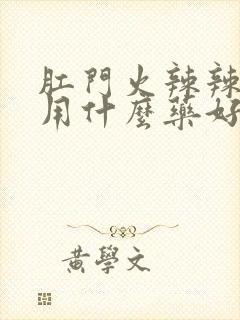 肛門火辣辣
用什麼藥好
黃學文